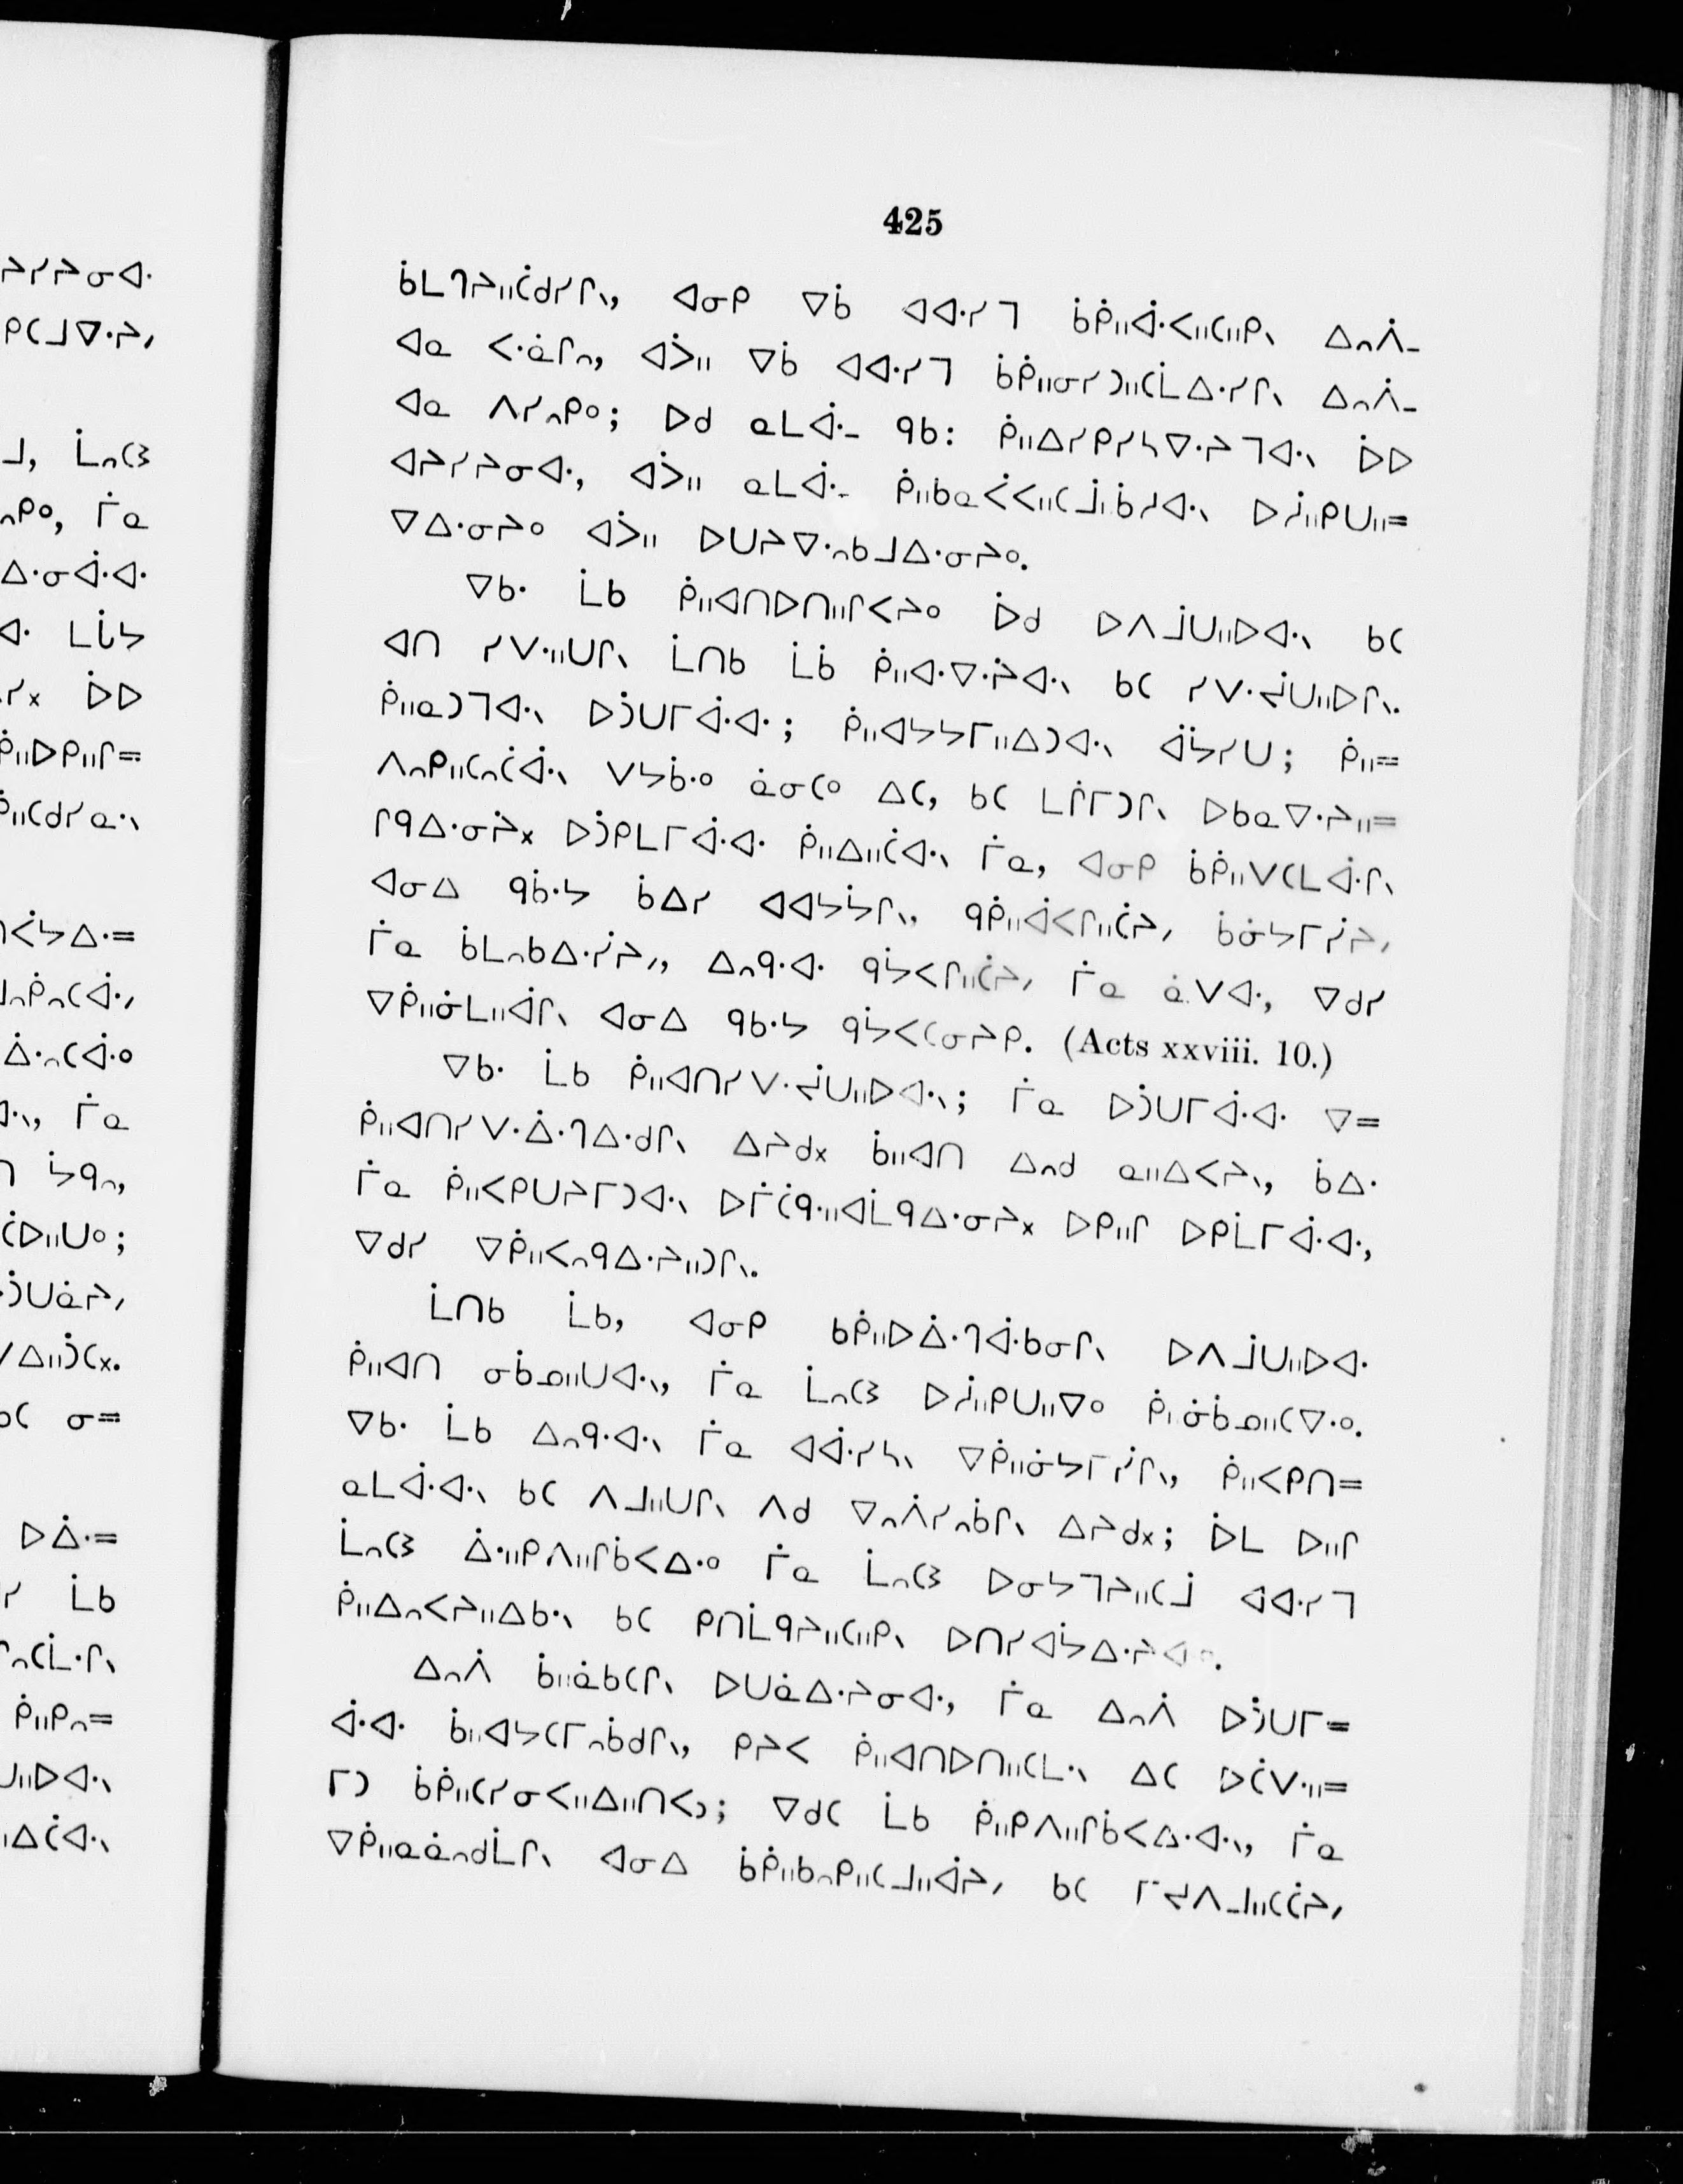 425
ᑳᒪᒉᔨᐦᑖᑯᓯᒋᐠ, ᐊᓂᑭ ᐁᑳ ᐊᐊᐧᓯᒣ ᑳᑮᐦᐋᐧᐸᐦᑕᐦᑭᐠ ᐃᐢᐲ-
ᐊᓇ ᐸᐧᓈᒋᐢ, ᐊᐴᐦ ᐁᑳ ᐊᐊᐧᓯᒣ ᑳᑮᐦᓂᓯᑐᐦᑕᒫᐃᐧᓯᒋᐠ ᐃᐢᐲ-
ᐊᓇ ᐱᓯᐢᑭᐤ; ᐅᑯ ᓇᒪᐋᐧ- ᑫᑲ: ᑮᐦᐃᓯᑭᓯᓴᐁᐧᔨᒣᐊᐧᐠ ᐆᐅ
ᐊᔨᓯᔨᓂᐊᐧ, ᐊᐴᐦ ᓇᒪᐋᐧ- ᑮᐦᑲᓇᐹᐸᐦᑕᒨᑳᓱᐊᐧᐠ ᐅᓲᐦᑭᑌᐦ=
ᐁᐃᐧᓂᔨᐤ ᐊᐴᐦ ᐅᑌᔨᐁᐧᐢᑲᒧᐃᐧᓂᔨᐤ.
ᐁᑲᐧ ᒫᑲ ᑮᐦᐊᑎᐅᑎᐦᒋᐸᔨᐤ ᐆᑯ ᐅᐱᒨᑌᐦᐅᐊᐧᐠ ᑲᑕ
ᐊᑎ ᓯᐯᐧᐦᑌᒋᐠ ᒫᑎᑲ ᒫᑳ ᑮᐦᐊᐧᐁᐧᔩᐊᐧᐠ ᑲᑕ ᓯᐯᐧᔫᑌᐦᐅᒋᐠ.
ᑮᐦᓇᑐᒣᐊᐧᐠ ᐅᑑᑌᒥᐋᐧᐊᐧ; ᑮᐦᐊᔭᔭᒥᐦᐃᑐᐊᐧᐠ ᐋᔭᓯᑌ; ᑮᐦ=
ᐱᐢᑭᐦᑕᐢᑖᐋᐧᐠ ᐯᔭᑳᐧᐤ ᓈᓂᑕᐤ ᐃᑕ, ᑲᑕ ᒪᒌᒥᑐᒋᐠ ᐅᑲᓇᐁᐧᔨᐦ=
ᒋᑫᐃᐧᓂᔩᕽ ᐅᑑᑭᒪᒥᐋᐧᐊᐧ ᑮᐦᐃᐦᑖᐊᐧᐠ ᒦᓇ, ᐊᓂᑭ ᑳᑮᐦᐯᑕᒪᐋᐧᒋᐠ
ᐊᓂᐃ ᑫᑳᐧᔭ ᑳᐃᓯ ᐊᐊᔭᔮᒋᐠ, ᑫᑮᐦᐋᐸᒋᐦᑖᔨᐟ ᑳᓃᔭᒥᓰᔨᐟ
ᒦᓇ ᑳᒪᐢᑲᐃᐧᓰᔨᐟ, ᐃᐢᑫᐧᐊᐧ ᑫᔮᐸᒋᐦᑖᔨᐟ ᒦᓇ ᓈᐯᐊᐧ, ᐁᑯᓯ
ᐁᑮᐦᓃᒪᐦᐋᒋᐠ ᐊᓂᐃ ᑫᑲᐧᔭ ᑫᔮᐸᑕᓂᔨᑭ. (Acts xxviii. 10.)
ᐁᑲᐧ ᒫᑲ ᑮᐦᐊᑎᓯᐯᐧᔫᑌᐦᐅᐊᐧᐠ; ᒦᓇ ᐅᑑᑌᒥᐋᐧᐊᐧ ᐁ=
ᑮᐦᐊᑎᓯᐯᐧᐄᐧᒉᐃᐧᑯᒋᐠ ᐃᔨᑯᕽ ᑳᐦᐊᑎ ᐃᐢᑯ ᓇᐦᐃᐸᔨᐠ, ᑳᐃᐧ
ᒦᓇ ᑮᐦᐸᑭᑌᔨᒥᑐᐊᐧᐠ ᐅᒦᑖᑫᐧᐦᐊᒫᑫᐃᐧᓂᔨᕽ ᐅᑭᐦᒋ ᐅᑭᒫᒥᐋᐧᐊᐧ,
ᐁᑯᓯ ᐁᑮᐦᐸᐢᑫᐃᐧᔨᐦᑐᒋᐠ.
ᒫᑎᑲ ᒫᑲ, ᐊᓂᑭ ᑲᑮᐦᐅᐄᐧᒉᐋᐧᑲᓂᒋᐠ ᐅᐱᒨᑌᐦᐅᐊᐧ
ᑮᐦᐊᑎ ᓂᑳᓄᐦᑌᐊᐧᐠ, ᒦᓇ ᒫᐢᑕᕒ ᐅᓲᐦᑭᑌᐦᐁᐤ ᑮᐦᓃᑳᓄᐦᑕᐁᐧᐤ.
ᐁᑲᐧ ᒫᑲ ᐃᐢᑫᐧᐊᐧᐠ ᒦᓇ ᐊᐋᐧᓯᓴᐠ ᐁᑮᐦᓃᔭᒥᓰᒋᐠ, ᑮᐦᐸᑭᑎ=
ᓇᒪᐋᐧᐊᐧᐠ ᑲᑕ ᐱᒧᐦᑌᒋᐠ ᐱᑯ ᐁᐢᐲᓯᐢᑳᒋᐠ ᐃᔨᑯᕽ; ᐆᒪ ᐅᐦᒋ
ᒫᐢᑕᕒ ᐄᐧᐦᑭᐱᐦᒋᑳᐸᐃᐧᐤ ᒦᓇ ᒫᐢᑕᕒ ᐅᓂᔭᒣᔨᐦᑕᒨ ᐊᐊᐧᓯᒣ
ᑮᐦᐃᐢᐸᔨᐦᐃᑲᐧᐠ ᑲᑕ ᑭᑎᒫᑫᔨᐦᑕᐦᑭᐠ ᐅᑎᓯᐊᔮᐃᐧᔨᐊᐧ.
ᐃᐢᐲ ᑳᐦᓈᑲᑕᒋᐠ ᐅᑌᓈᐃᐧᔨᓂᐊᐧ, ᒦᓇ ᐃᐢᐲ ᐅᑑᑌᒥ=
ᐋᐧᐊᐧ ᑳᐦᐊᔭᑕᒥᐢᑳᑯᒋᐠ, ᑭᔨᐸ ᑮᐦᐊᑎᐅᑎᐦᑕᒪᐧᐠ ᐃᑕ ᐅᑖᐯᐧᐦ=
ᒥᑐ ᑳᑮᐦᑕᓯᓂᐸᐦᐃᐦᑎᐸᐣ; ᐁᑯᑕ ᒫᑲ ᑮᐦᑭᐱᐦᒋᑳᐸᐃᐧᐊᐧᐠ, ᒦᓇ
ᐁᑮᐦᓇᓈᐢᑯᒫᒋᐠ ᐊᓂᐃ ᑳᑮᐦᑲᐢᑭᐦᑕᒧᐦᐋᔨᐟ ᑲᑕ ᒥᔪᐱᒧᐦᑕᑖᔨᐟ